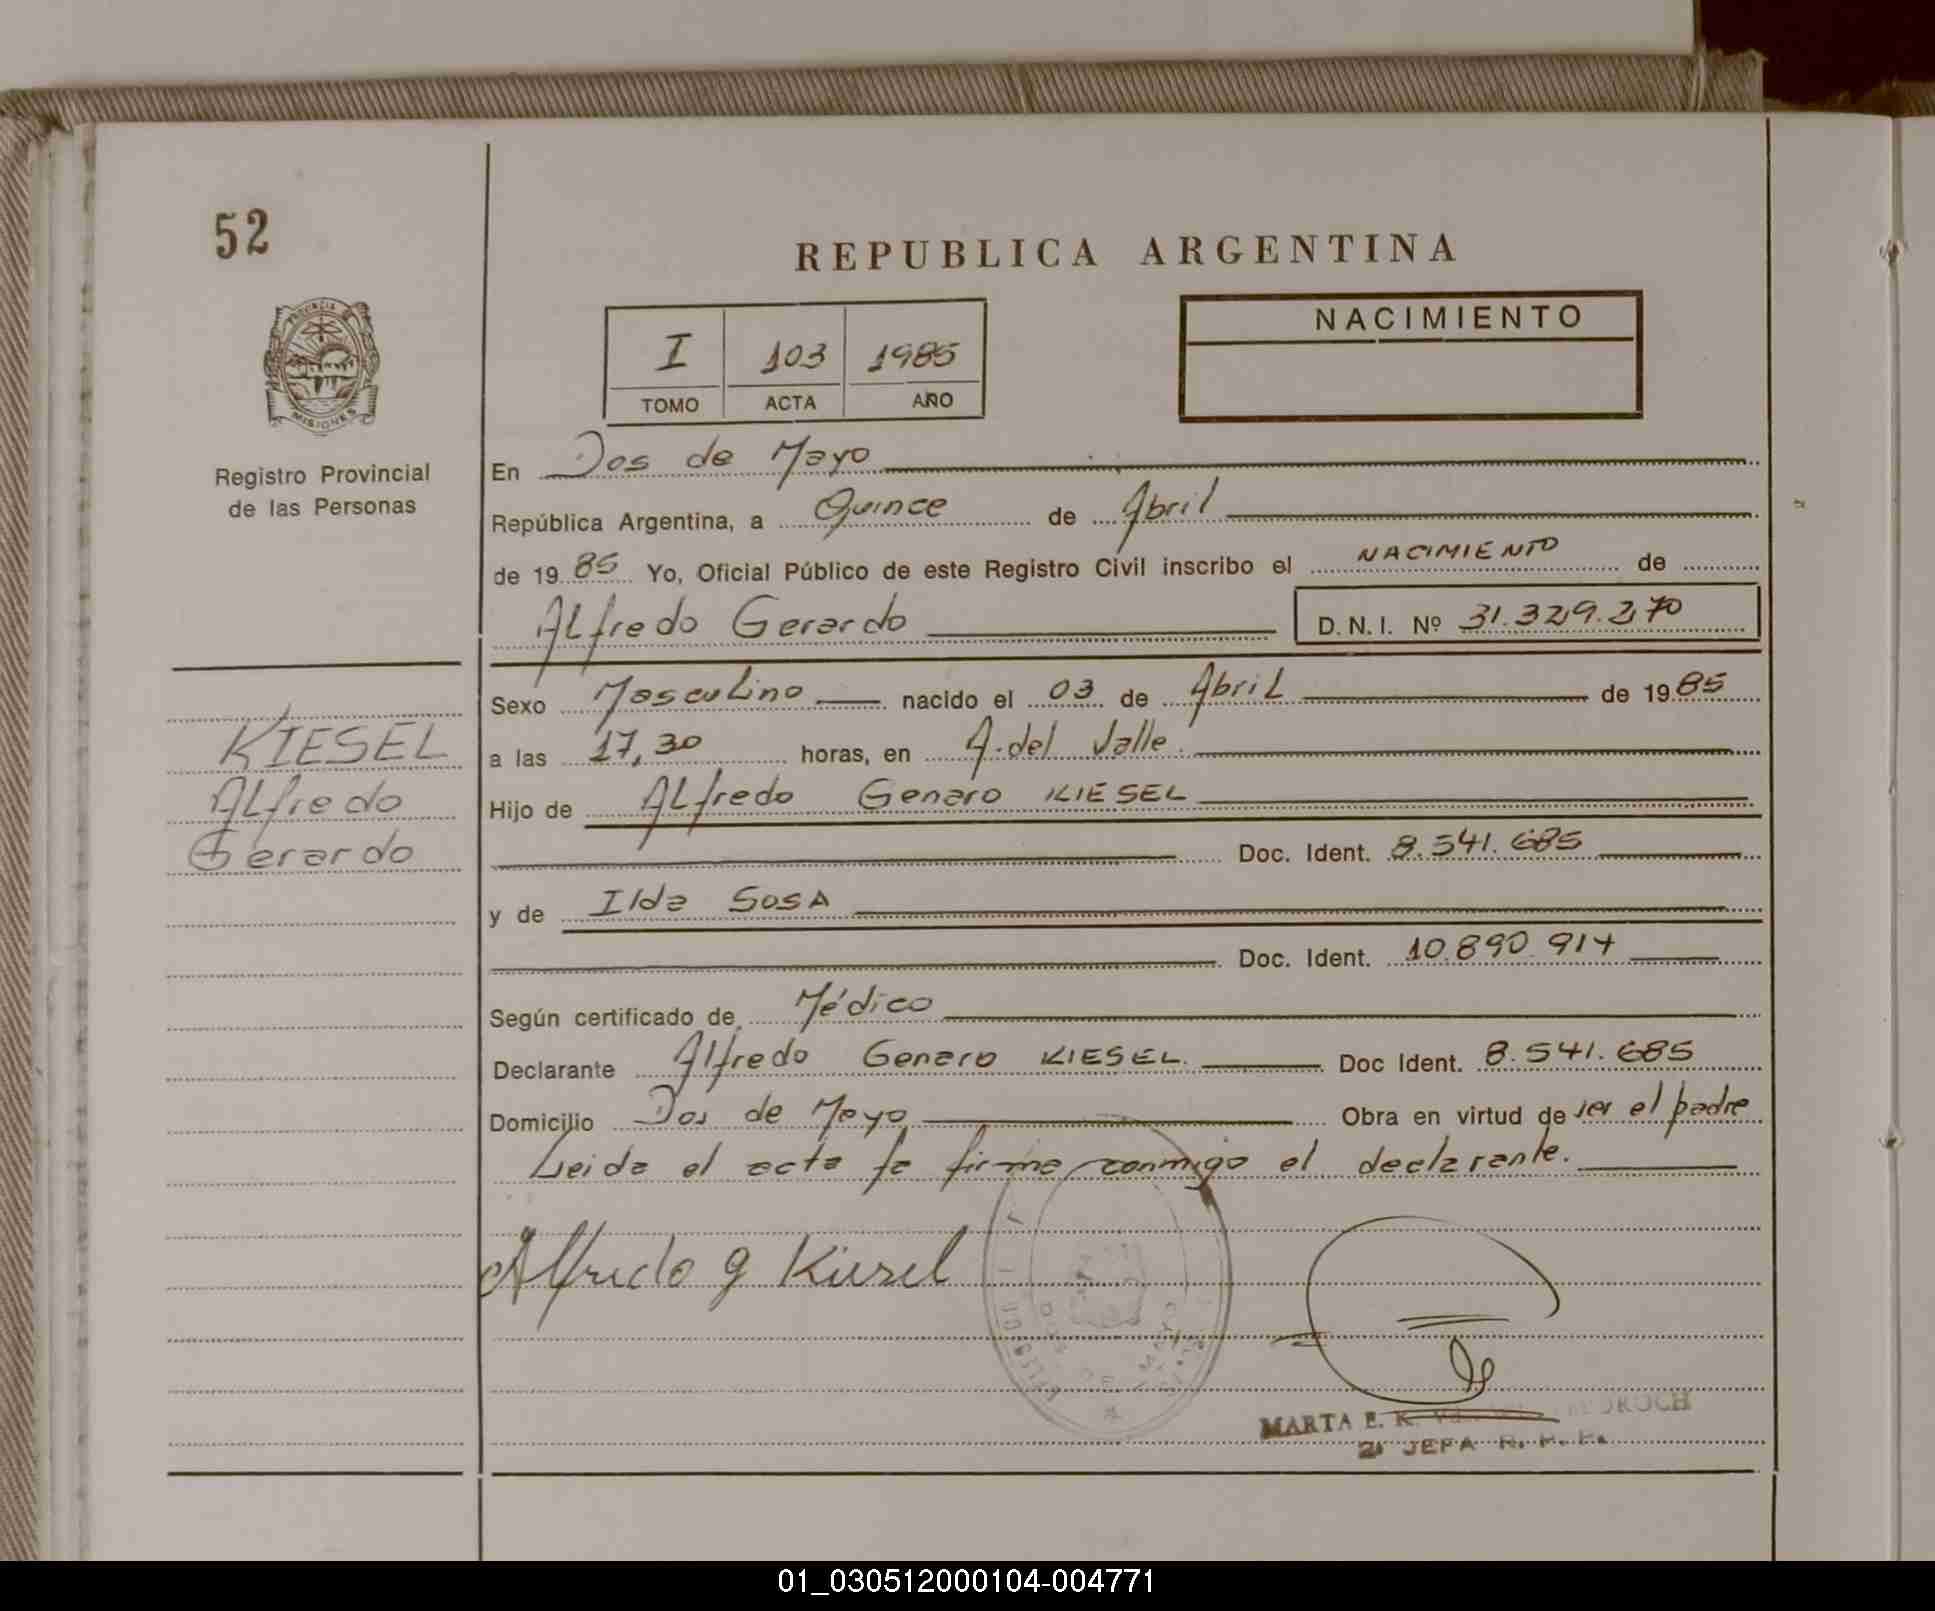 52
REPUBLICA ARGENTINA
PROVINCIA D
MISIONES
Registro Provincial
de las Personas
I 103 1985
TOMO ACTA AÑO
NACIMIENTO
En Dos de Mayo
República Argentina, a Quince de Abril
de 1985 Yo, Oficial Público de este Registro Civil inscribo el NACIMIENTO de
Alfredo Gerardo D.N.I. Nº 31.329.270
Sexo Masculino nacido el 03 de Abril de 1985
a las 17,30 horas, en A. del Valle.
KIESEL
Alfredo
Gerardo
Hijo de Alfredo Genaro KIESEL
Doc. Ident. 8.541.685
y de Ilda SOSA
Doc. Ident. 10.890.914
Según certificado de Médico
Declarante Alfredo Genaro KIESEL. Doc Ident. 8.541.685
Domicilio Dos de Mayo Obra en virtud de ser el padre
Leida el acta la firma conmigo el declarante.
Alfredo G Kiesel
MARTA E. K.
JEFA R. P. P.
01_030512000104-004771